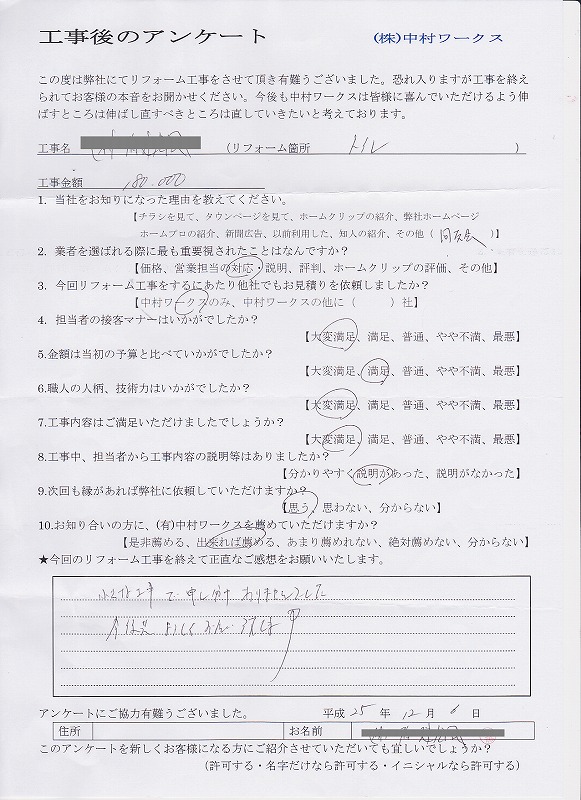 工事後のアンケート
(株)中村ワークス
この度は弊社にてリフォーム工事をさせて頂き有難うございました。恐れ入りますが工事を終え
られてお客様の本音をお聞かせください。今後も中村ワークスは皆様に喜んでいただけるよう伸
ばすところは伸ばし直すべきところは直していきたいと考えております。
工事名 (リフォーム箇所 トイレ )
工事金額 180.000
1. 当社をお知りになった理由を教えてください。
【チラシを見て、タウンページを見て、ホームクリップの紹介、弊社ホームページ
ホームプロの紹介、新聞広告、以前利用した、知人の紹介、その他( )】
2. 業者を選ばれる際に最も重要視されたことはなんですか?
【価格、営業担当の対応・説明、評判、ホームクリップの評価、その他】
3. 今回リフォーム工事をするにあたり他社でもお見積りを依頼しましたか?
【中村ワークスのみ、中村ワークスの他に( )社】
4. 担当者の接客マナーはいかがでしたか?
【大変満足、満足、普通、やや不満、最悪】
5.金額は当初の予算と比べていかがでしたか?
【大変満足、満足、普通、やや不満、最悪】
6.職人の人柄、技術力はいかがでしたか?
【大変満足、満足、普通、やや不満、最悪】
7.工事内容はご満足いただけましたでしょうか?
【大変満足、満足、普通、やや不満、最悪】
8.工事中、担当者から工事内容の説明等はありましたか?
【分かりやすく説明があった、説明がなかった】
9.次回も縁があれば弊社に依頼していただけますか?
【思う、思わない、分からない】
10.お知り合いの方に、(有)中村ワークスを薦めていただけますか?
【是非薦める、出来れば薦める、あまり薦めれない、絶対薦めない、分からない】
★今回のリフォーム工事を終えて正直なご感想をお願いいたします。
小さな工事で申し訳ありませんでした
今後共よろしくお願い致します
アンケートにご協力有難うございました。 平成 25 年 12 月 6 日
住所 お名前
このアンケートを新しくお客様になる方にご紹介させていただいても宜しいでしょうか?
(許可する・名字だけなら許可する・イニシャルなら許可する)